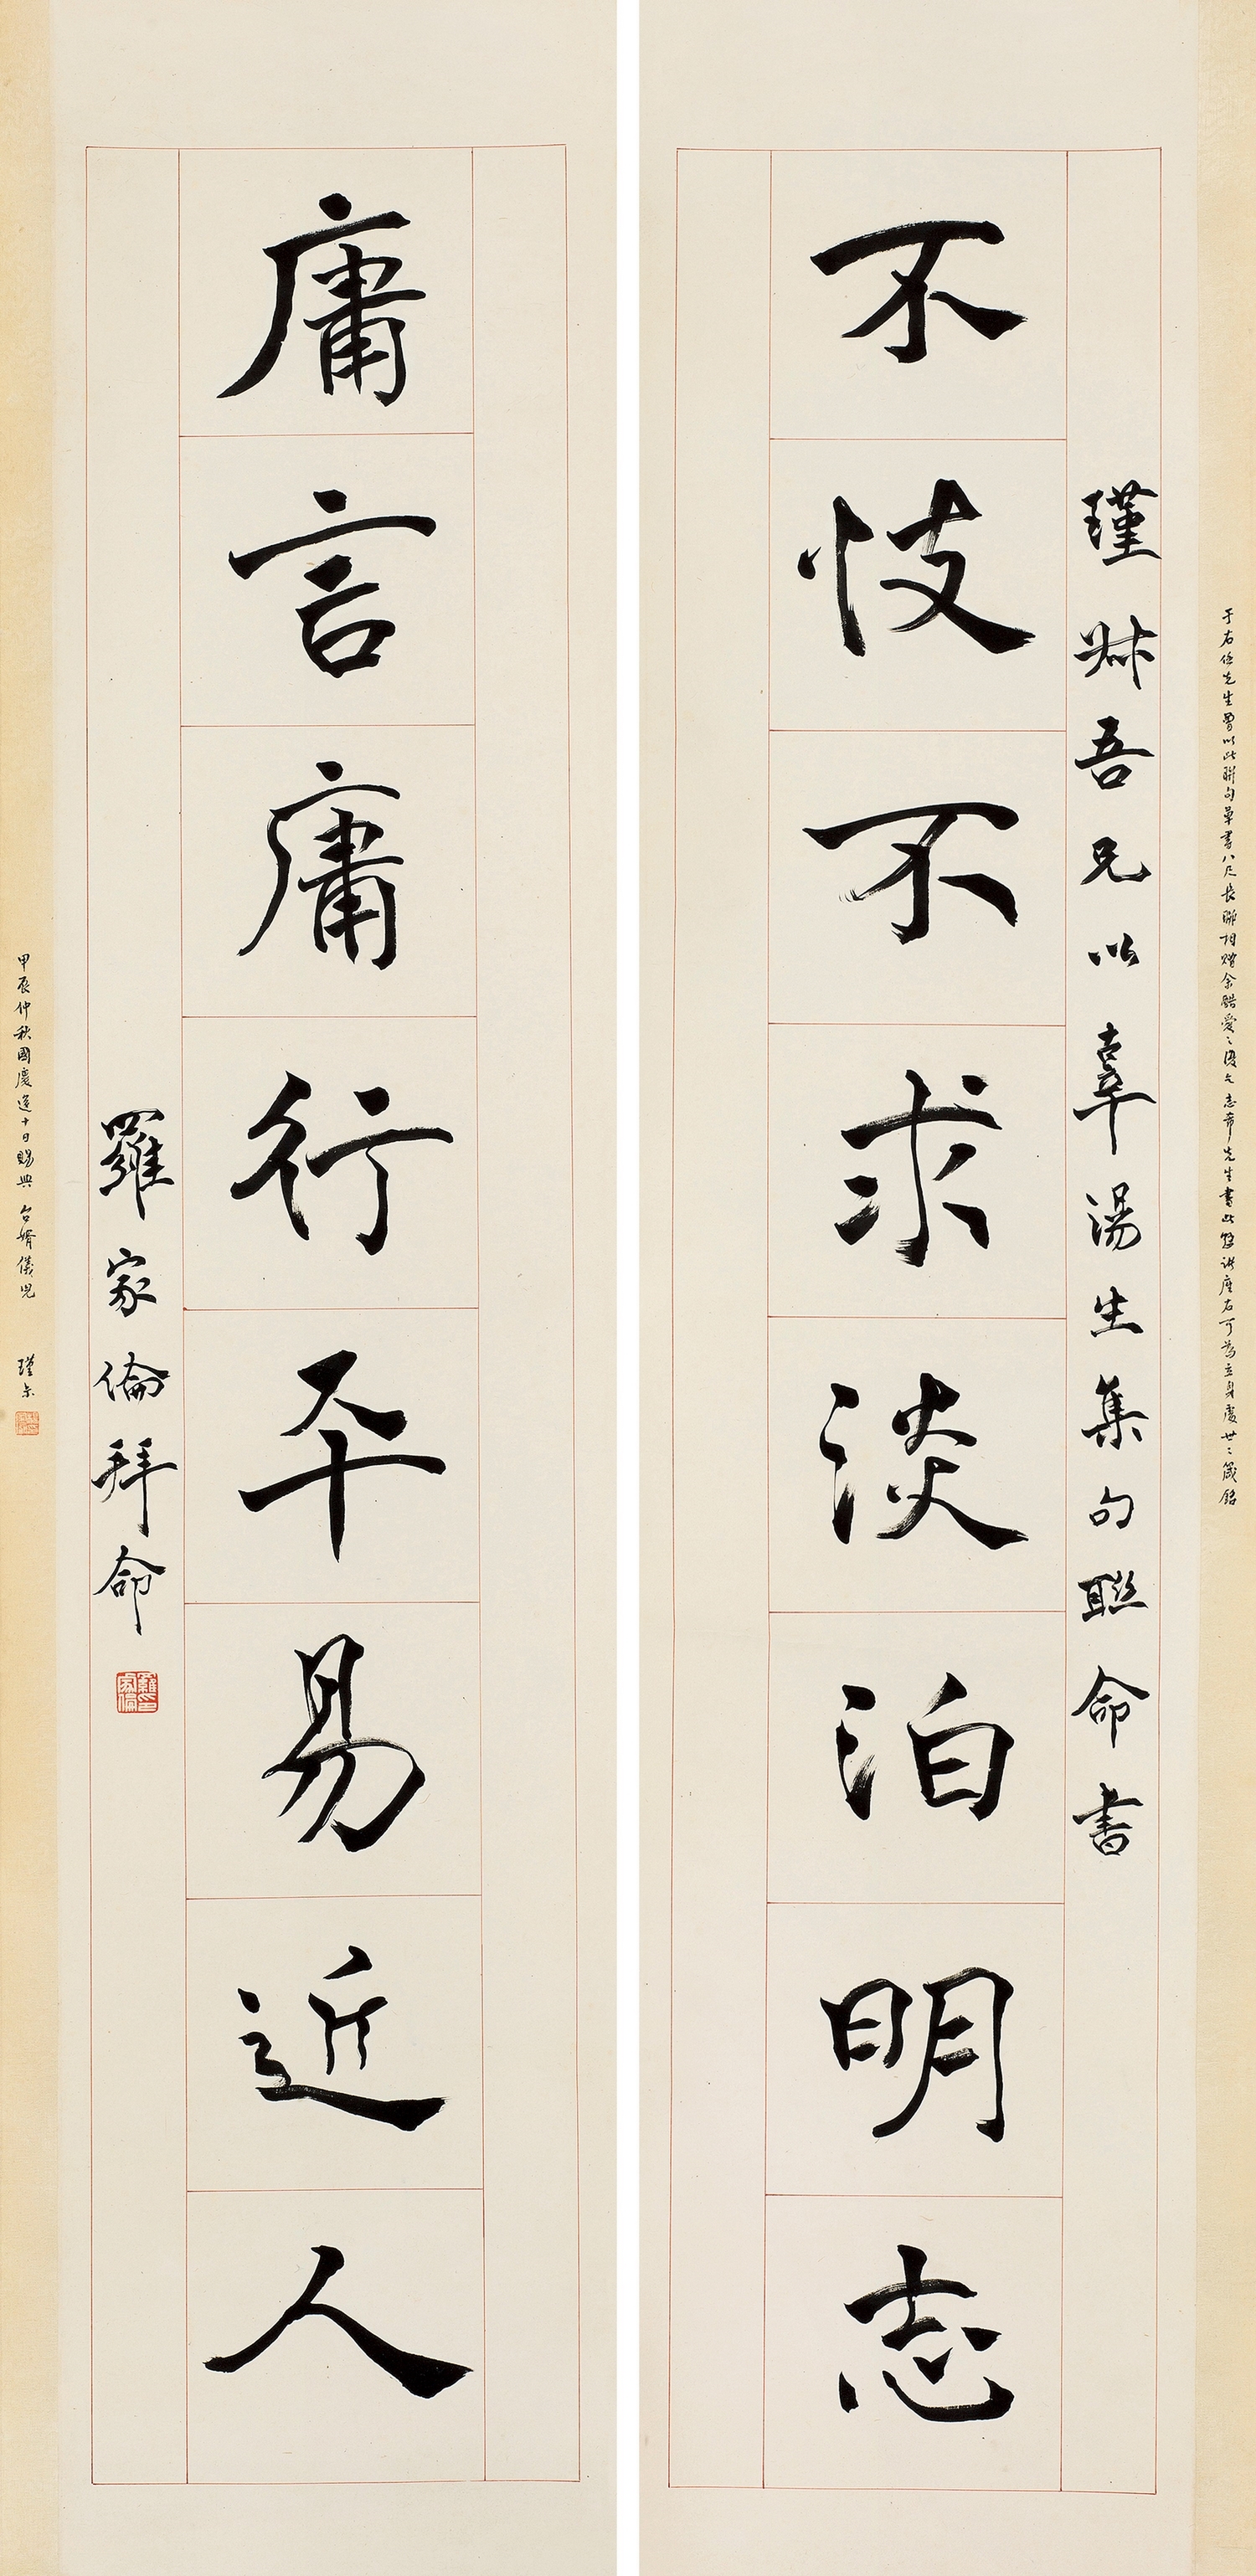 于右任先生曾以此聯句草書八尺長聯相贈余酷愛之復乞志希先生書此懸諸座右可為立身處世之箴銘
瑾叔吾兄以辜湯生集句聯命書
不忮不求淡泊明志
庸言庸行平易近人
羅家倫拜命
甲辰仲秋國慶十日賜與台婿儀兒 瑾示